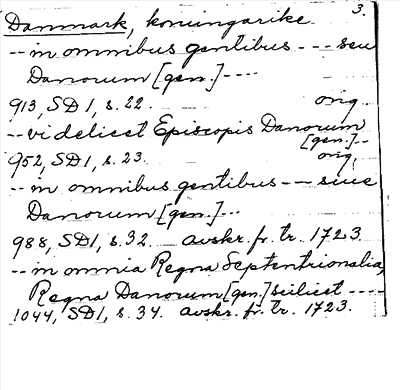 3.
Danmark, konungarike.
-- in omnibus gentibus --- seu
Danorum [gen.] ----
913, SD 1, s. 22. orig.
-- videlicet Episcopis Danorum
[gen.]--
952, SD 1, s. 23. orig.
-- in omnibus gentibus --- siue
Danorum [gen.] ---
988, SD1, s. 32. avskr. fr. tr. 1723.
-- in omnia Regna Septentrionalia,
Regna Danorum [gen.] scilicet ----
1044, SD1, s. 34. avskr. fr. tr. 1723.